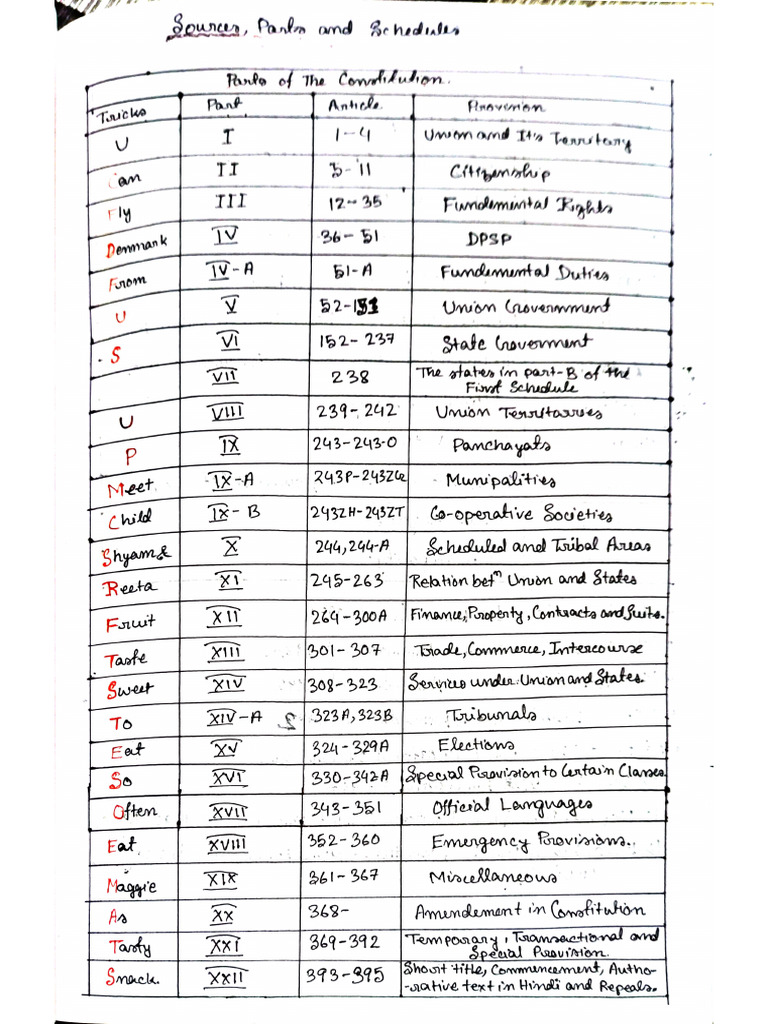 Sources, Parts and Schedules
Parts of The Constitution.
Tricks Part Article Provision
U I 1-4 Union and It's Territory
Can II 5-11 Citizenship
Fly III 12-35 Fundemental Rights
Denmark IV 36-51 DPSP
From IV-A 51-A Fundemental Duties
U V 52-151 Union Government
S VI 152-237 State Goverment
VII 238 The states in part-B of the
First Schedule
U VIII 239-242 Union Territarries
P IX 243-243-O Panchayats
Meet IX-A 243P-243ZG Munipalities
Child IX-B 243ZH-243ZT Co-operative Societies
Shyam& X 244, 244-A Scheduled and Tribal Areas
Reeta XI 245-263 Relation betn Union and States
Fruit XII 264-300A Finance, Property, Contracts and Suits.
Taste XIII 301-307 Trade, Commerce, Intercourse
Sweet XIV 308-323 Services under Union and States.
To XIV-A 323A, 323B Tribunals
Eat XV 324-329A Elections
So XVI 330-342A Special Provision to Certain Classes.
Often XVII 343-351 Official Languages
Eat XVIII 352-360 Emergency Provisions.
Maggie XIX 361-367 Miscellaneous
As XX 368- Amendement in Constitution
Tasty XXI 369-392 Temporary, Transectional and
Special Provision.
Snack. XXII 393-395 Short title, Commencement, Autho-
-rative text in Hindi and Repeals.